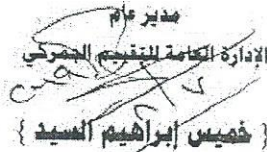 مدير عام
الإدارة العامة للتقييم الجمركي
{ خميس إبراهيم السيد }